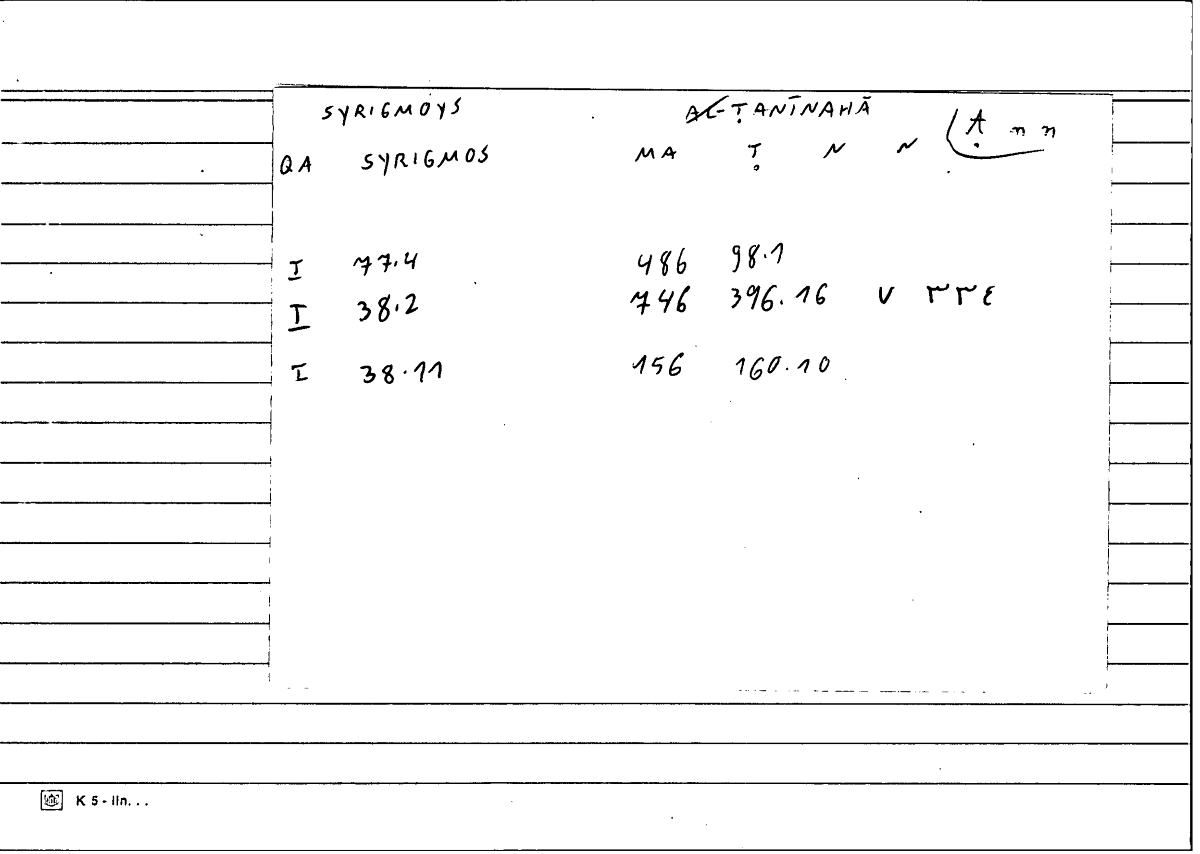 SYRIGMOYS AL-ṬANĪNAHĀ
QA SYRIGMOS MA Ṭ N N ṭ n n
I 77.4 486 98.1
I 38.2 746 396.16 V ٣٢٤
I 38.11 156 160.10
K 5 - lln. . .